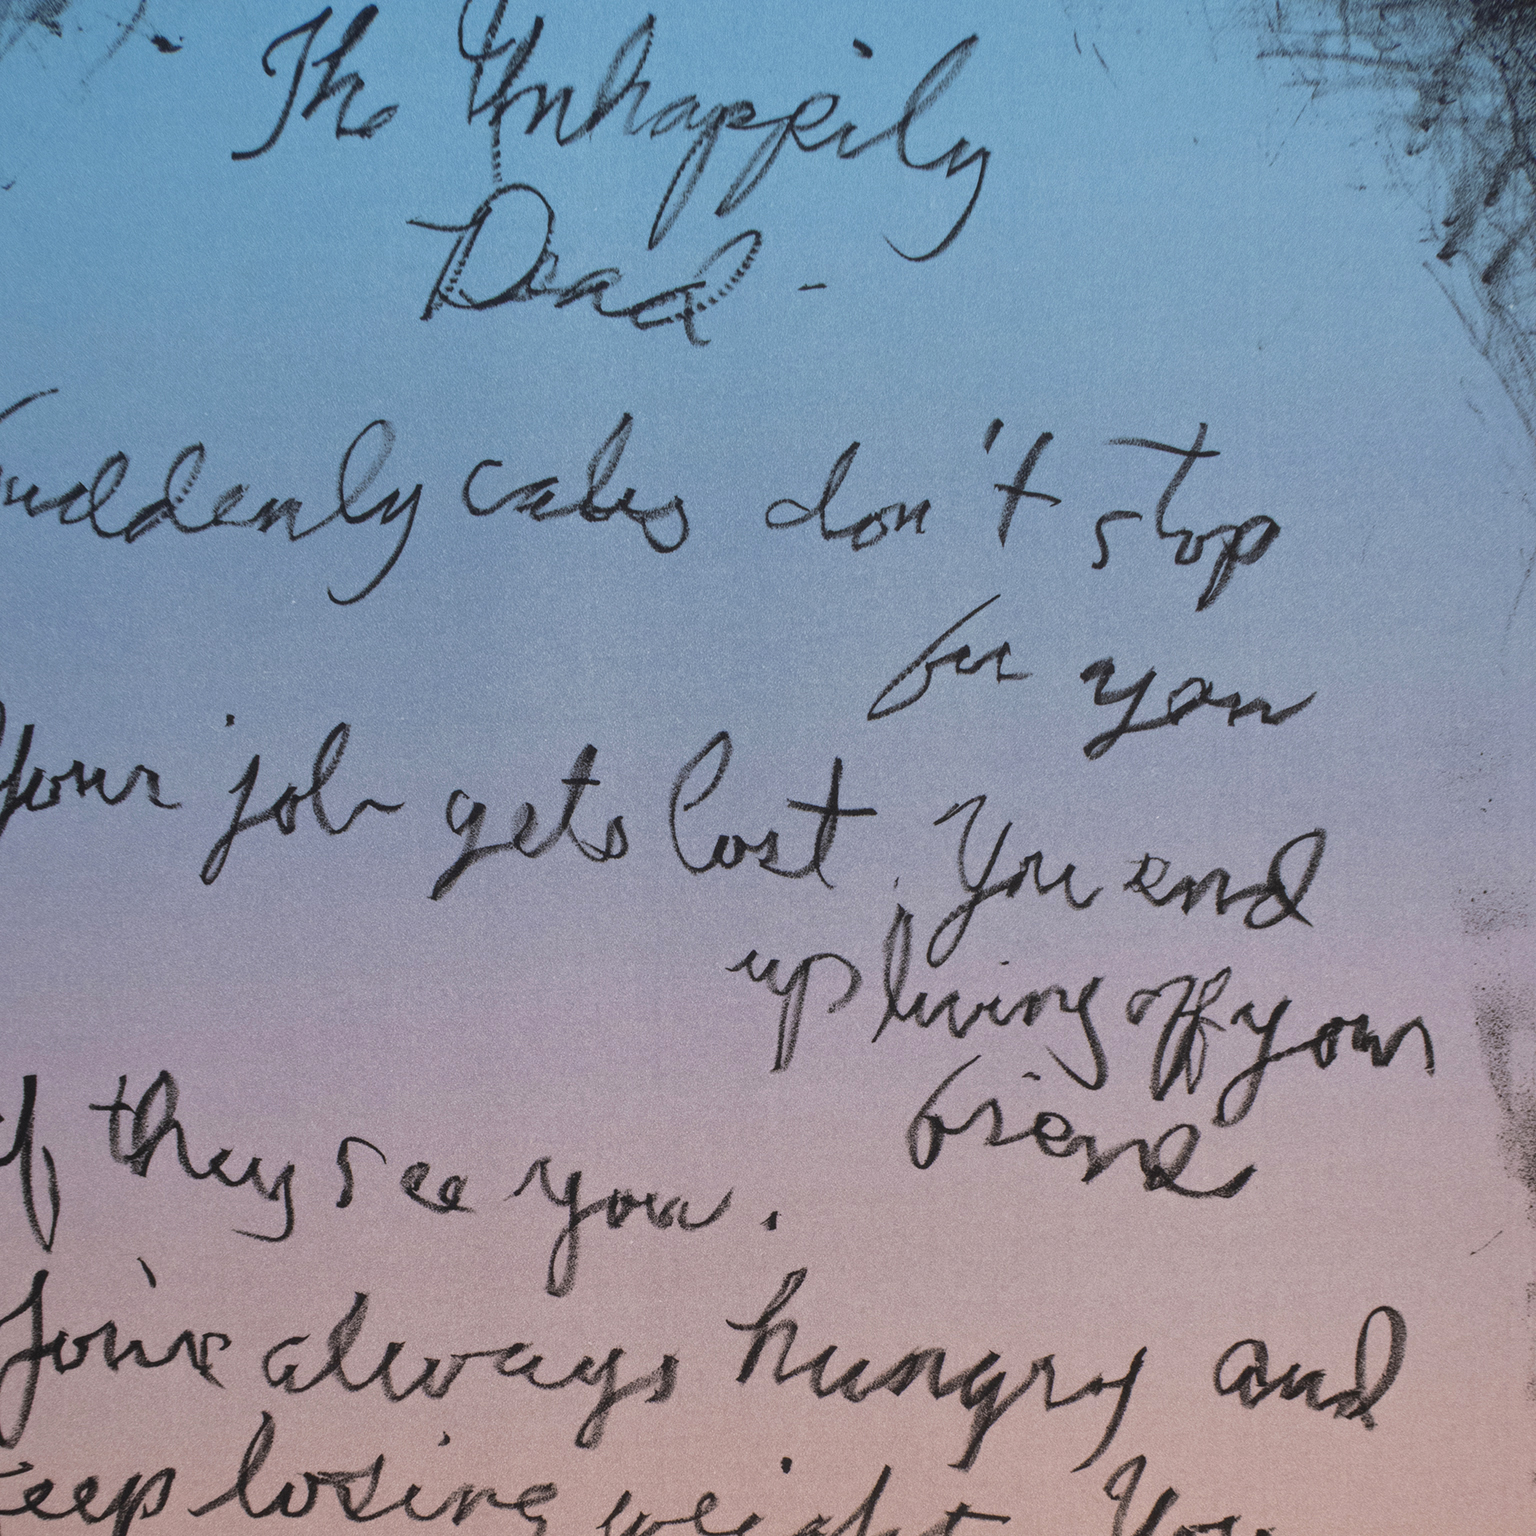 The Unhappily
Dead -
Suddenly cabs don't stop
for you
Your job gets lost. You end
up living off your
friends
if they see you.
You're always hungry and
keep losing weight. You